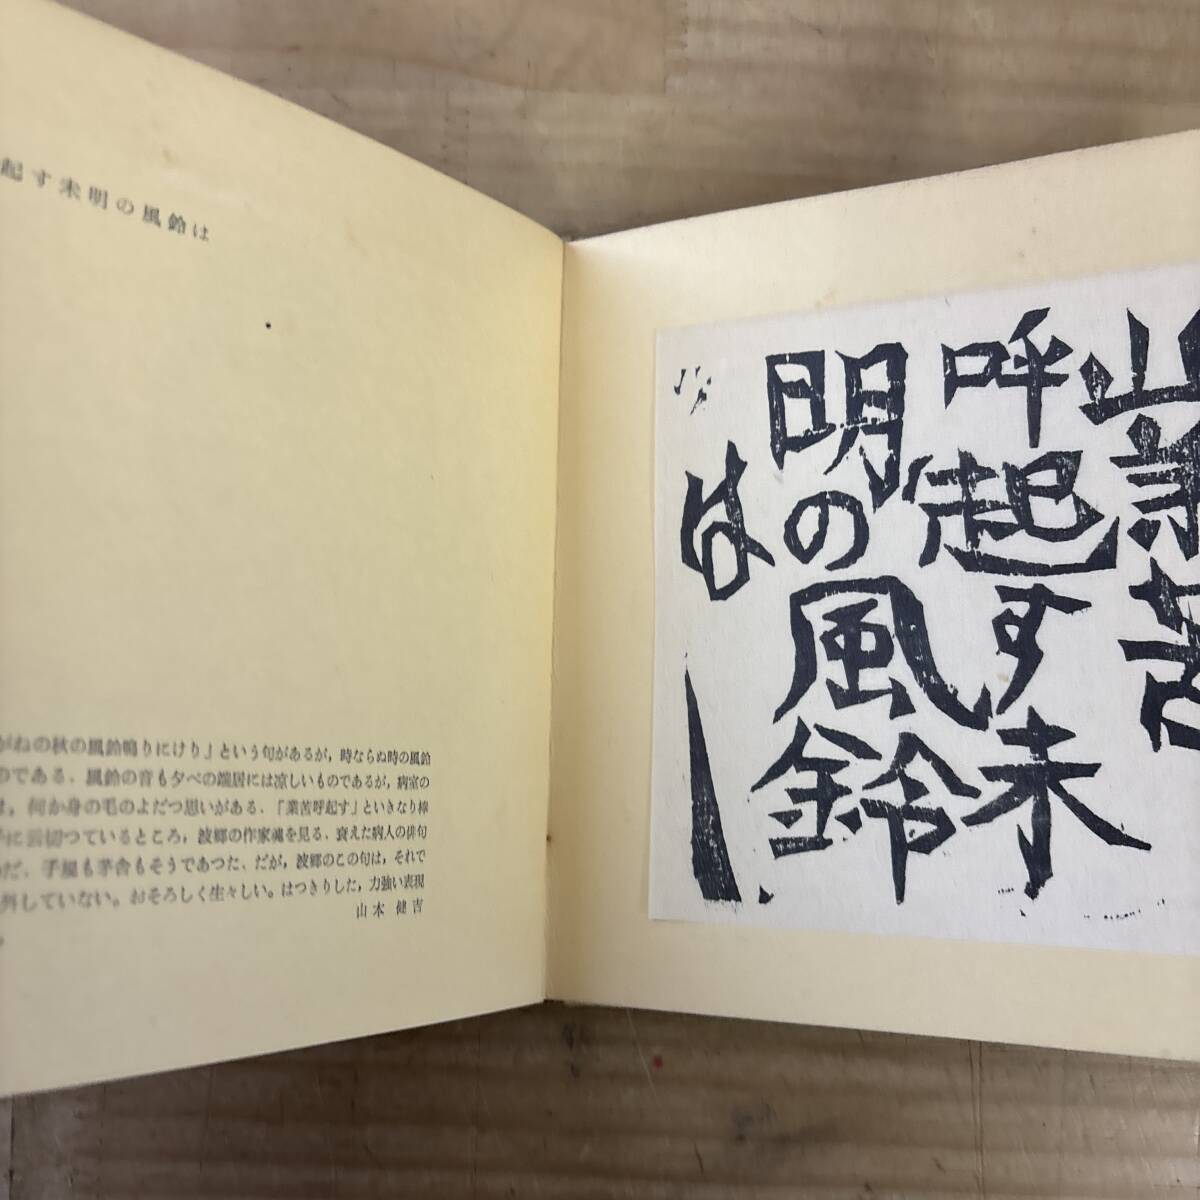 起す未明の風鈴は
がねの秋の風鈴鳴りにけり』という句があるが，時ならぬ時の風鈴
のである．風鈴の音も夕べの端居には涼しいものであるが，病室の
，何か身の毛のよだつ思いがある．「業苦呼起す」といきなり棒
に云切つているところ，波郷の作家魂を見る．衰えた病人の俳句
だ．子規も茅舎もそうであつた．だが，波郷のこの句は，それで
外していない。おそろしく生々しい。はつきりした，力強い表現
山本健吉
業苦
呼起す未
明の風鈴
は